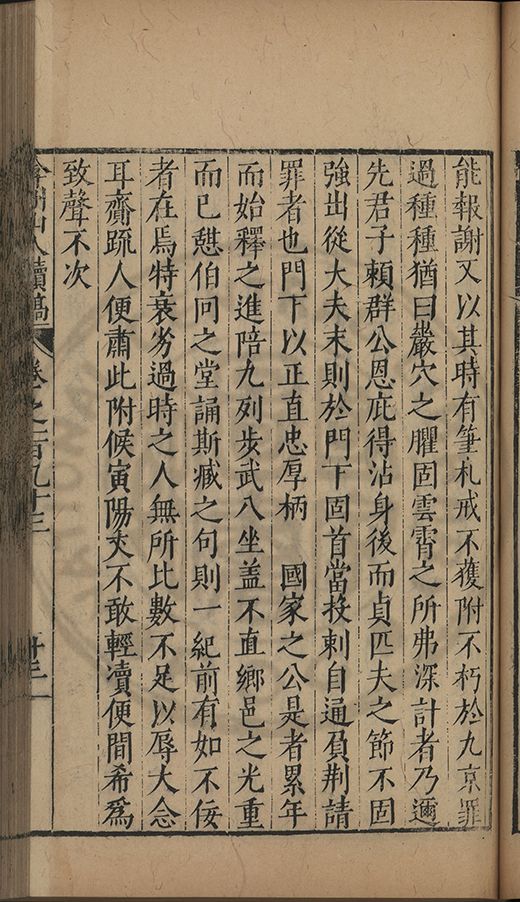 能報謝又以其時有筆札戒不獲附不朽於九京罪
過種種猶曰巖穴之臞固雲霄之所弗深計者乃邇
先君子賴群公恩庇得沾身後而貞匹夫之節不固
強出從大夫末則於門下固首當投刺自通負荆請
罪者也門下以正直忠厚柄　國家之公是者累年
而始釋之進陪九列步武八坐盖不直鄉邑之光重
而已憇伯囘之堂誦斯臧之句則一紀前有如不佞
者在焉特衰劣過時之人無所比數不足以辱大念
耳齋疏人便肅此附候寅陽丈不敢輕瀆便間希爲
致聲不次
弇州山人續稿 卷之一百九十三 廿三